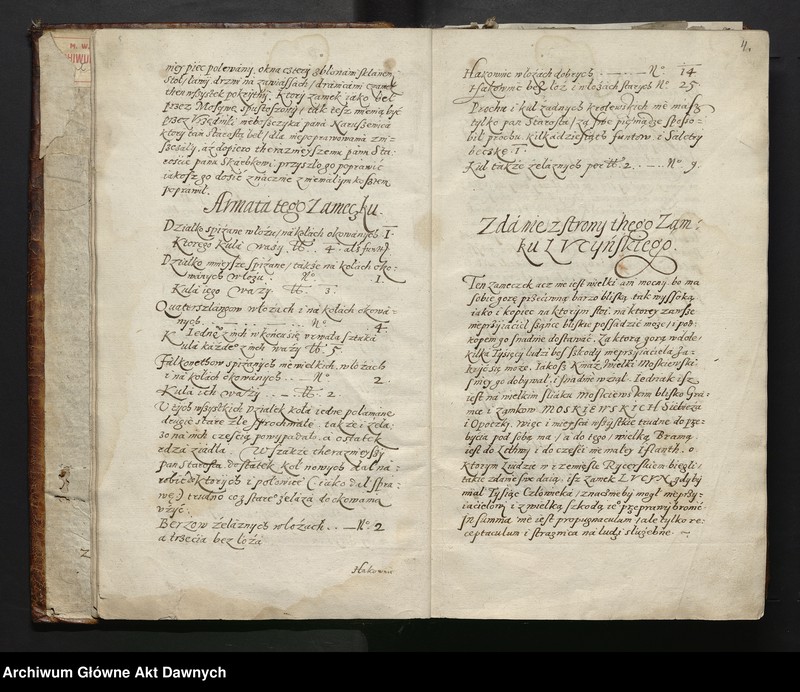 niey piec polewany, okna cztery z błonami sklanemi
Stol / lawy drzwi na zawiassach / dranicami
then wszystek pokryty. Ktory zamek iako bel
przez Moskwę spustoszony / tak tesz mienią być
przez
ktory tam Starostą bel / dla nieoprawowania
aż dopiero theraznieyszemu panu Sta:
roscie panu Skarbkowi przyszło go poprawić
iakosz go dosić znacznie z niemałym kosztem
poprawił.
Armata tego Zameczku.
Działko spiżane w łożu / na kolach okowanych 1.
Ktorego Kula waży. tt. . 4. als funty.
Działko mnieysze spiżane / także na kolach oko:
wanych w łożu. No. 1.
Kula iego waży tt. 3.
Quaterszlangow w łożach i na kolach okowa:
nych. No. 4.
Iedne z nich w koncu się urwała sztuka
Kula kazde z nich waży tt. 5
Falkonetow spiżanych niewielkich, w łożach
i na kolach okowanych . . — No 2.
Kula ich waży . . — tt. 2
U tych wszystkich Działek kola iedne polamane
drugie stare złe sprochniałe. także i żela:
so na nich częscią powypadało. a ostatek
rdza ziadła. Wszakże theraznieyszy
pan Starosta. dostatek kol nowych dał na:
robić do ktorych i polowice (iako dał spra:
wę) trudno co z stare żelaza do okowania
użyć.
Berzow żelaznych w łożach . . — No. 2
a trzecia bez łoża
Hakownic
4.
Hakownic w łożach dobrych . — — — No. 14
Hakownic bez łoż i w łożach starych No. 25
Prochu i kul żadnych krolewskich nie masz
tylko pan Starosta / za swe pieniądze sposo:
bił prochu kilkadziesiąt funtow i Saletry
beczkę. 1.
Kul także żelaznych po tt. 2. — . . No. 9.
Zdanie z strony thego Zam:
ku LUCYŃskiego.
Ten zameczek acz nie iest wielki ani mocny. bo ma
sobie gorę przeciwną barzo bliską tak wysoką
iako i kopiec na ktorym stoi. na ktorey zawsze
nieprzyiaciel szance bliskie possadzić może / i pod:
kopem go snadnie dostawać. Za ktorą gorą w dole /
kilka Tysięcy ludzi bes szkody nieprzyiaciela za:
kryć się może. Iakosz Kniaz Wielki Moskiewski
s niey go dobywał, i snadnie wziął. Iednak isz
iest na wielkim sliaku Moskiewskim blisko Gra:
nic i zamkow MOSKIEWSKICH Siebieża
i Opoczky. więc i mieysca wszystkie trudne do prze:
bycia pod sobą ma / a do tego / wielką Bramą
iest do Lithwy i do częsci niemałey Islanth. o
ktorym Ludzie w rzemięsle Rycerskiem biegli /
takie zdanie swe daią. isz zamek LUCYN gdyby
miał Tysiąc Człowieka / znacznieby mogł nieprzy:
iacielowi i z wielką szkodą ie° przeprawy bronić
In summa nie iest propugnaculum / ale tylko re:
ceptaculum i strażnica na ludzi służebne. —
Archiwum Główne Akt Dawnych